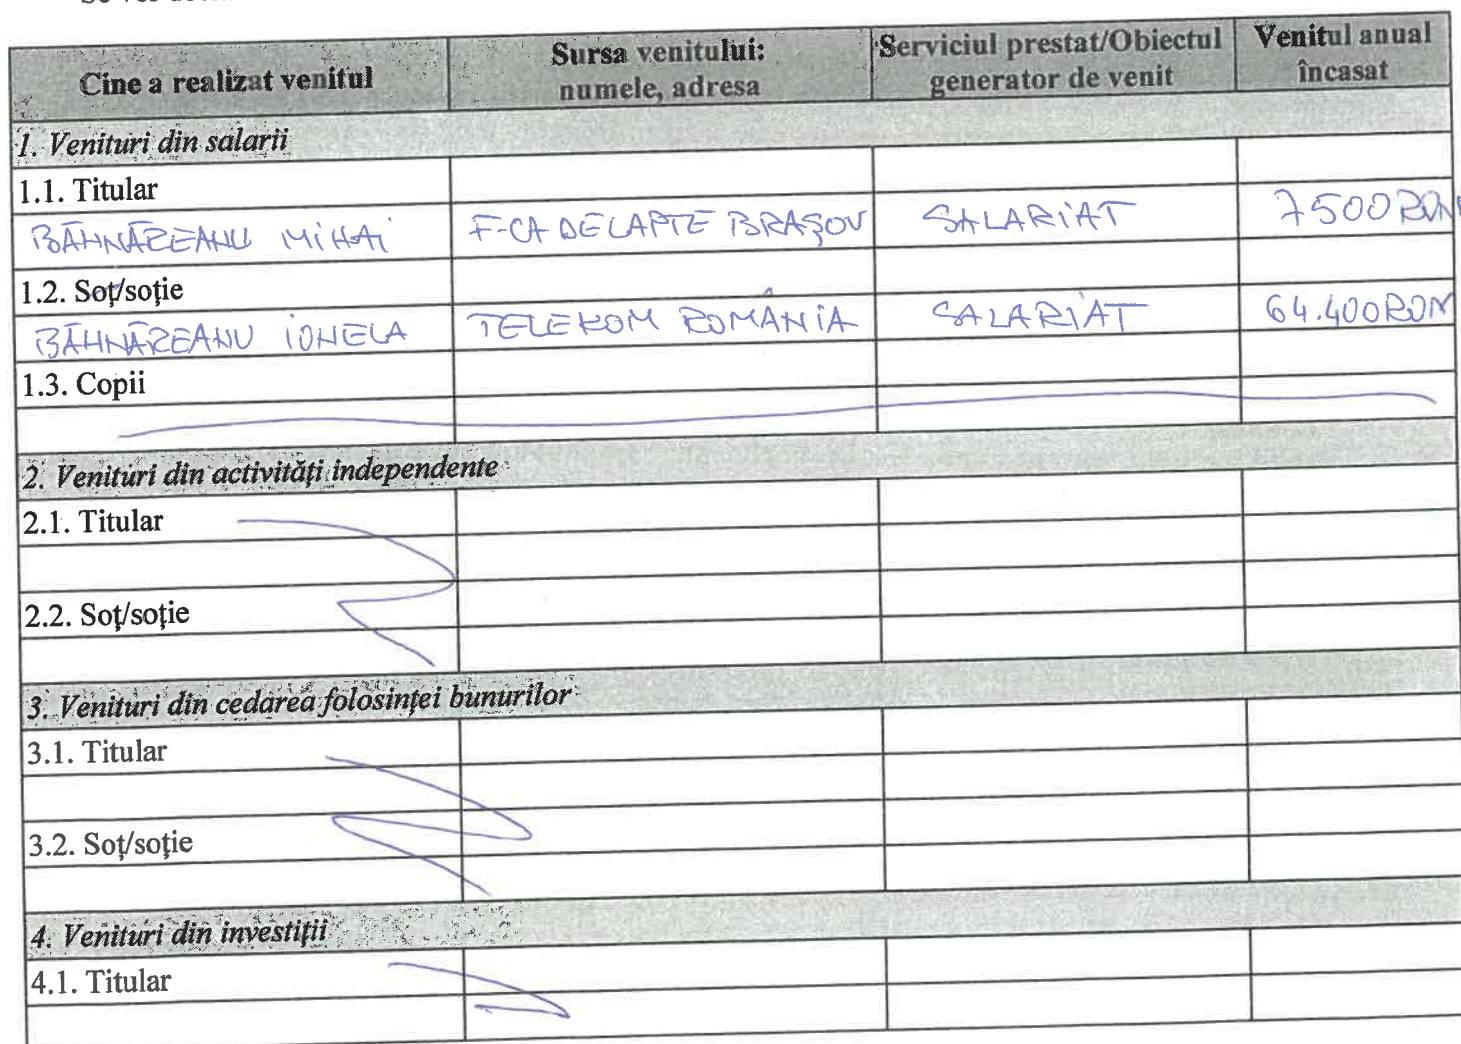 Cine a realizat venitul
Sursa venitului:
numele, adresa
Serviciul prestat/Obiectul
generator de venit
Venitul anual
încasat
1. Venituri din salarii
1.1. Titular
BĂHNĂREANU MIHAI F-CA DE LAPTE BRAȘOV SALARIAT 7500 RON
1.2. Soţ/soţie
BĂHNĂREANU IONELA TELEKOM ROMÂNIA SALARIAT 64.400 RON
1.3. Copii
2. Venituri din activităţi independente
2.1. Titular
2.2. Soţ/soţie
3. Venituri din cedarea folosinţei bunurilor
3.1. Titular
3.2. Soţ/soţie
4. Venituri din investiţii
4.1. Titular